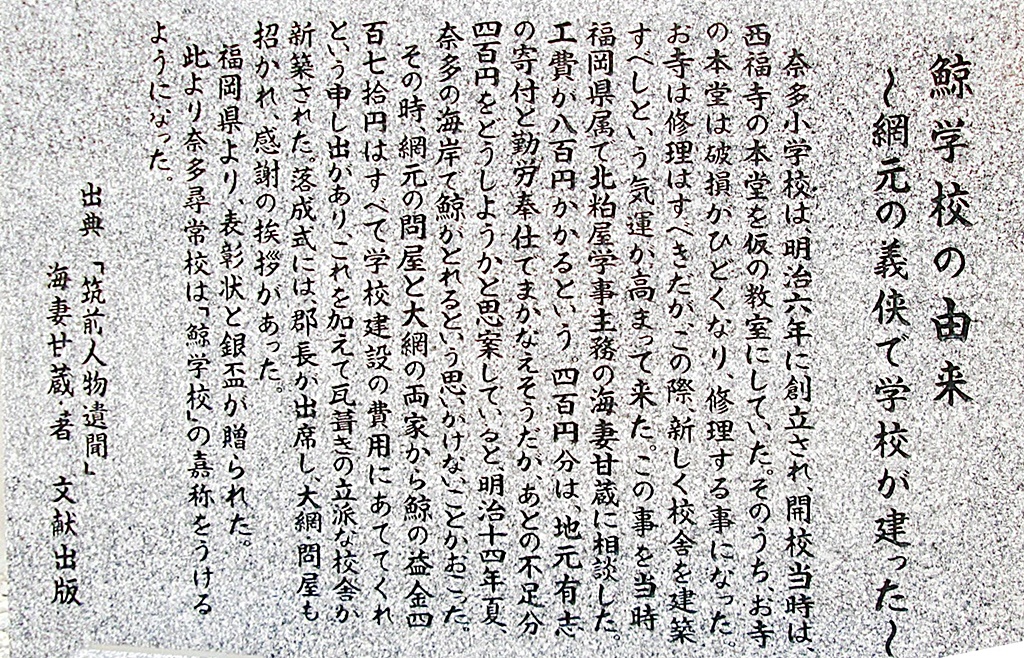 鯨学校の由来
～網元の義侠で学校が建った～
奈多小学校は、明治六年に創立され、開校当時は、
西福寺の本堂を仮の教室にしていた。そのうち、お寺
の本堂は破損がひどくなり、修理する事になった。
お寺は修理はすべきだが、この際、新しく校舎を建築
すべしという気運が高まって来た。この事を当時
福岡県属で北粕屋学事主務の海妻甘蔵に相談した。
工費が八百円かかるという。四百円分は、地元有志
の寄付と勤労奉仕でまかなえそうだが、あとの不足分
四百円をどうしようかと思案していると、明治十四年夏、
奈多の海岸で鯨がとれるという思いがけないことがおこった。
その時、網元の問屋と大網の両家から鯨の益金四
百七拾円はすべて学校建設の費用にあててくれ
という申し出があり、これを加えて瓦葺きの立派な校舎が
新築された。落成式には、郡長が出席し、大網問屋も
招かれ、感謝の挨拶があった。
福岡県より、表彰状と銀盃が贈られた。
此より奈多尋常校は「鯨学校」の嘉称をうける
ようになった。
出典 「筑前人物遺聞」
海妻甘蔵著 文献出版